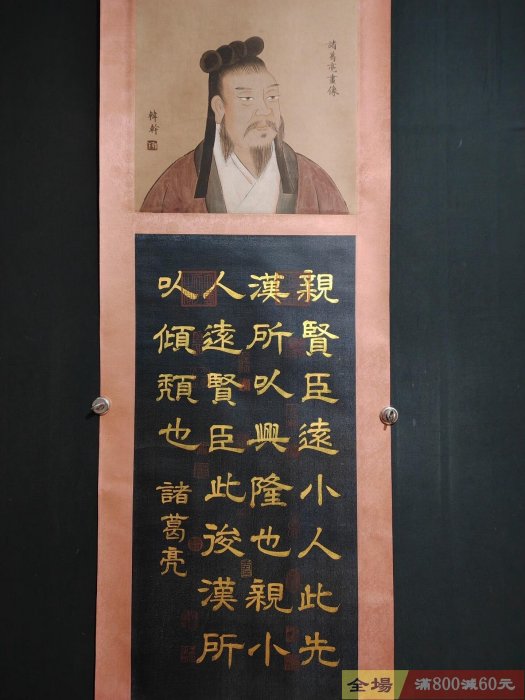 諸葛亮畫像
韓幹
親賢臣遠小人此先
漢所以興隆也親小
人遠賢臣此後漢所
以傾頹也 諸葛亮
全場 滿800減60元